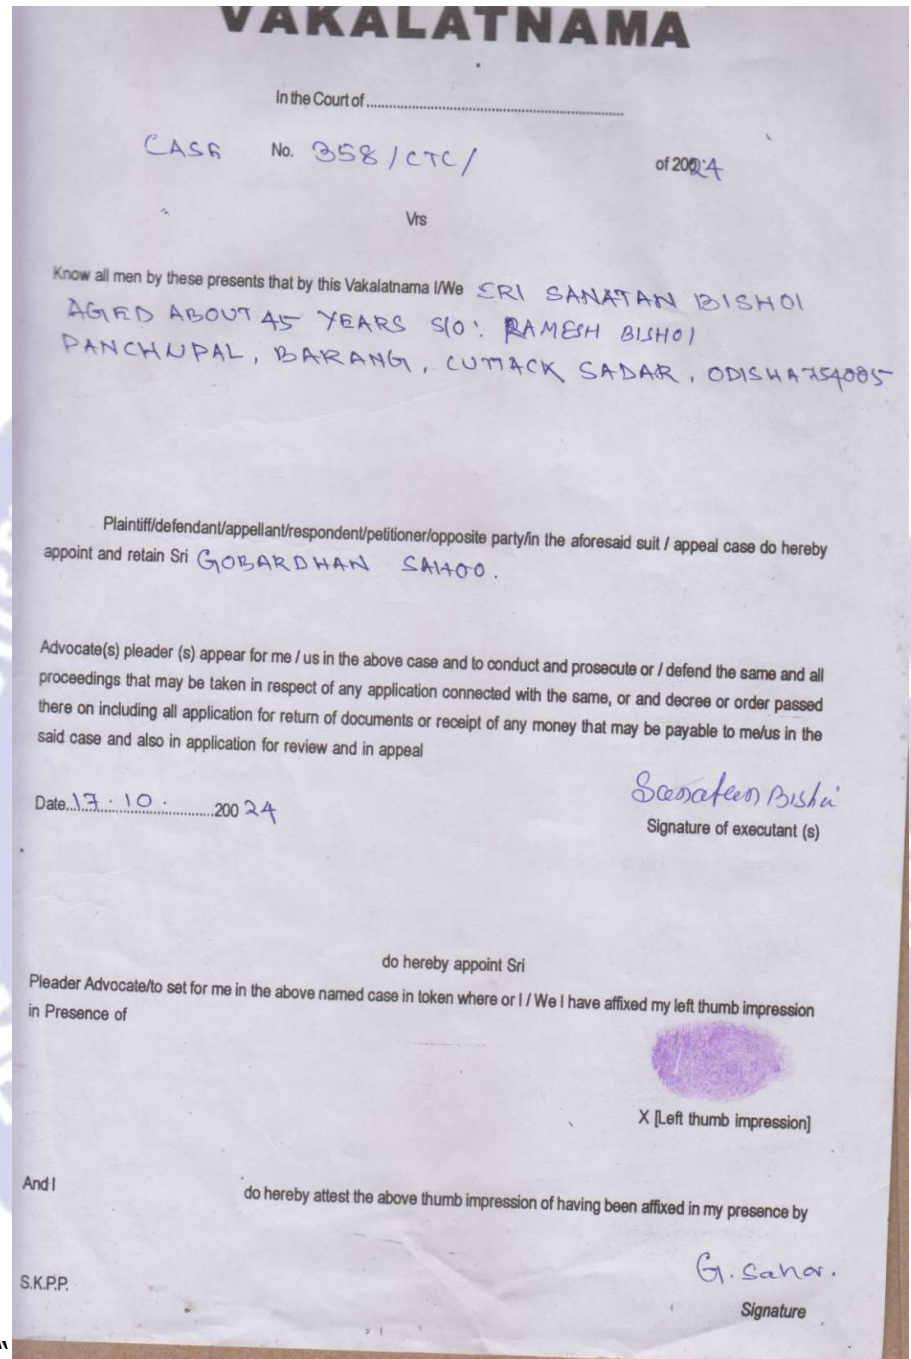 VAKALATNAMA
In the Court of ..........................................................
CASE No. 358/CTC/ of 20024
Vrs
Know all men by these presents that by this Vakalatnama I/We SRI SANATAN BISHOI
AGED ABOUT 45 YEARS S/O: RAMESH BISHOI
PANCHUPAL, BARANG, CUTTACK SADAR, ODISHA 754005
Plaintiff/defendant/appellant/respondent/petitioner/opposite party/in the aforesaid suit / appeal case do hereby
appoint and retain Sri GOBARDHAN SAHOO.
Advocate(s) pleader (s) appear for me / us in the above case and to conduct and prosecute or / defend the same and all
proceedings that may be taken in respect of any application connected with the same, or and decree or order passed
there on including all application for return of documents or receipt of any money that may be payable to me/us in the
said case and also in application for review and in appeal
Sanatan Bishoi
Date..17.10................200 24
Signature of executant (s)
do hereby appoint Sri
Pleader Advocate/to set for me in the above named case in token where or I / We I have affixed my left thumb impression
in Presence of
X [Left thumb impression]
And I do hereby attest the above thumb impression of having been affixed in my presence by
G. Sahoo.
S.K.P.P.
Signature